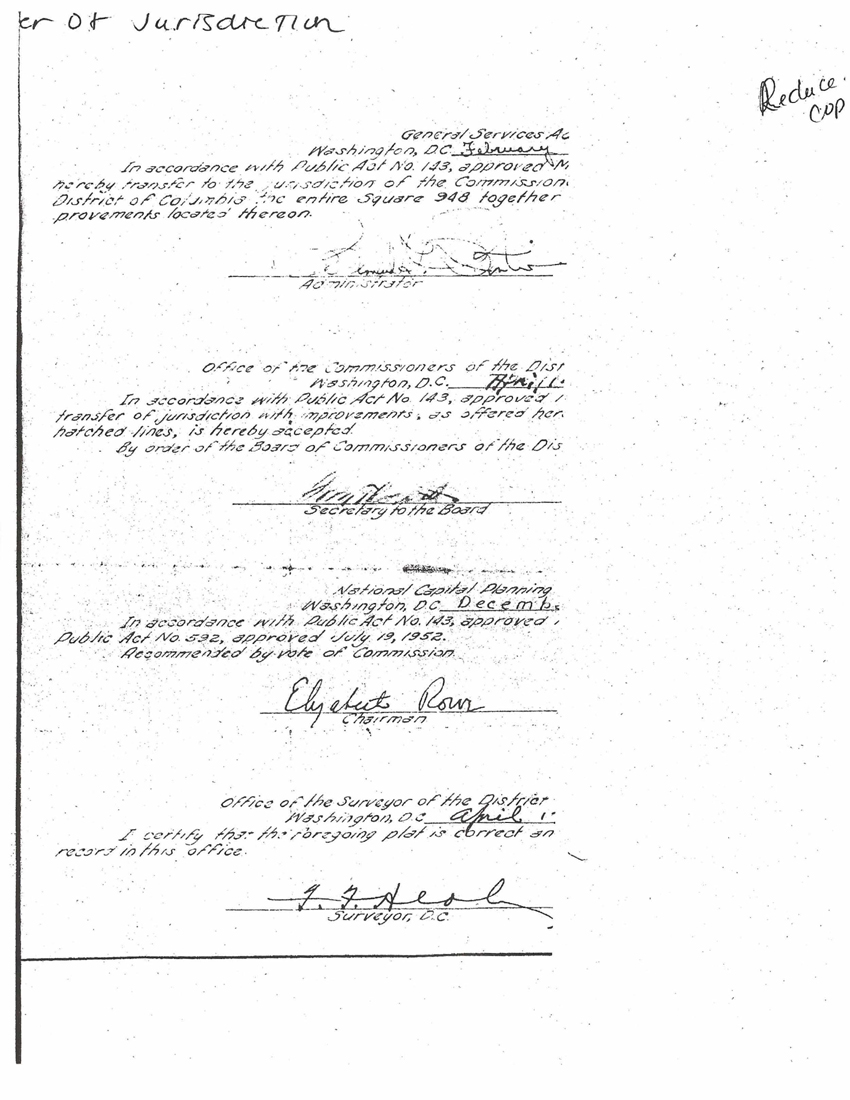 er Of Jurisdiction
Reduce
COP
General Services Ad
Washington, D.C. February
In accordance with Public Act No. 143, approved M
hereby transfer to the jurisdiction of the Commission
District of Columbia the entire Square 948 together
provements located thereon.
Administrator
Office of the Commissioners of the Dist
Washington, D.C. April 1
In accordance with Public Act No. 143, approved
transfer of jurisdiction with improvements, as offered her
hatched lines, is hereby accepted.
By order of the Board of Commissioners of the Dis
Secretary to the Board
National Capital Planning
Washington, D.C. Decemb
In accordance with Public Act No. 143, approved
Public Act No. 592, approved July 19, 1952.
Recommended by vote of Commission.
Elizabeth Rowe
Chairman
Office of the Surveyor of the District
Washington, D.C. April 1
I certify that the foregoing plat is correct an
record in this office.
Surveyor, D.C.